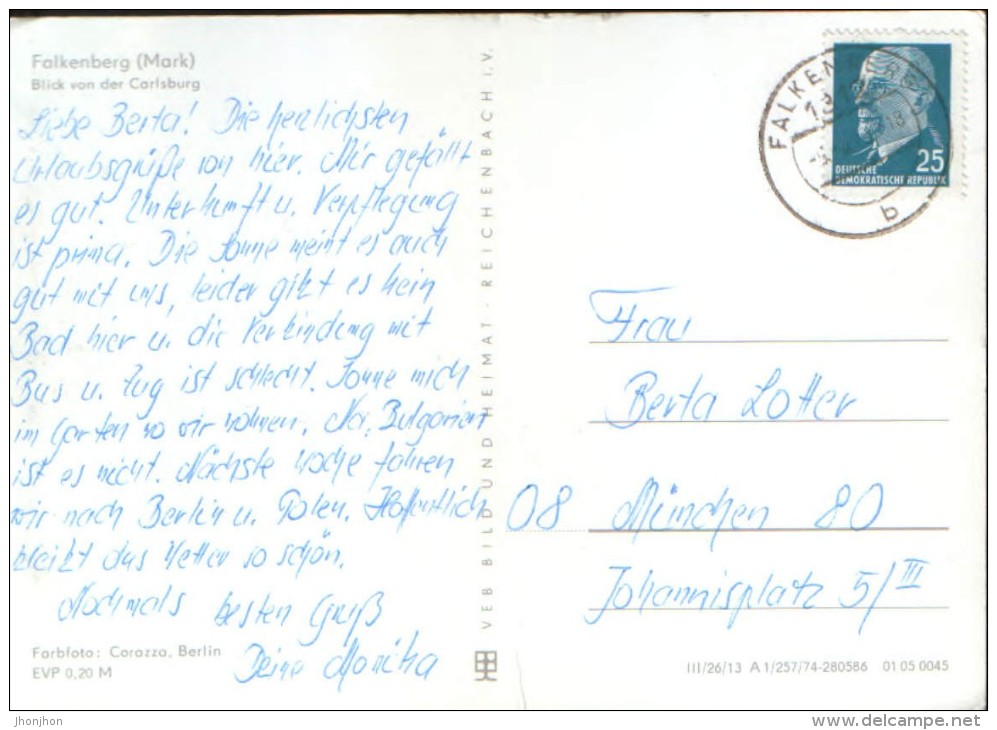 Falkenberg (Mark)
Blick von der Carlsburg
Liebe Berta! Die herzlichsten
Urlaubsgrüße von hier. Mir gefällt
es gut. Unterkunft u. Verpflegung
ist prima. Die Sonne meint es auch
gut mit uns, leider gibt es kein
Bad hier u. die Verbindung mit
Bus u. Zug ist schlecht. Sonne mich
im Garten wo wir wohnen. Na, Bulgarien
ist es nicht. Nächste Woche fahren
wir nach Berlin u. Polen. Hoffentlich
bleibt das Wetter so schön.
Nochmals besten Gruß
Deine Monika
Farbfoto: Corazza, Berlin
EVP 0,20 M
VEB BILD UND HEIMAT · REICHENBACH I. V.
FALKENBERG
18
b
25
DEUTSCHE
DEMOKRATISCHE REPUBLIK
Frau
Berta Lotter
08 München 80
Johannisplatz 5/III
III/26/13 A 1/257/74-280586 01 05 0045
jhonjhon
delcampe.net